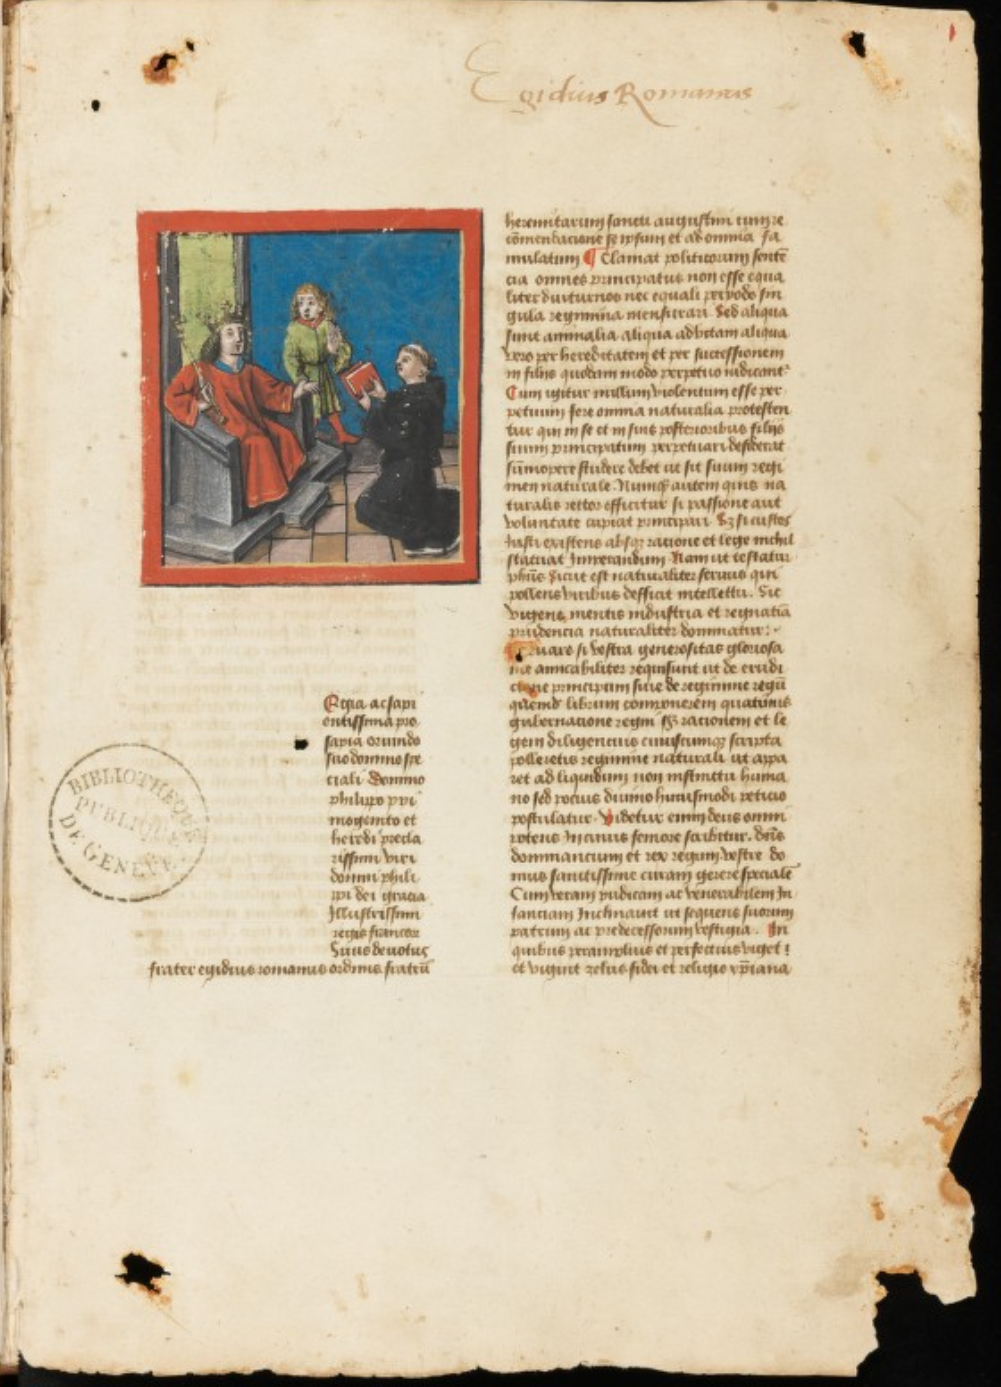 Egidius Romanus
Regia ac sapi
entissima pro
sapia oriundo
suo domino spe
ciali Domino
philippo pri
mogenito et
heredi precla
rissimi viri
domini phili
ppi dei gracia
Illustrissimi
regis francor
Suus devotus
frater egidius romanus ordinis fratrū
heremitarum sancti augustini cum re
cōmendacione se ipsum et ad omnia fa
mulatum ¶ Clamat politicorum sentē
cia omnes principatus non esse equa
liter diuturnos nec equali peryodo sin
gula regimina mensurari. Sed aliqua
sunt annualia aliqua ad vitam aliqua
vero per hereditatem et per successionem
in filijs quodam modo perpetuo iudicant
Cum igitur nullum violentum esse per
petuum fere omnia naturalia protesten
tur qui in se et in suis posterioribus filijs
suum principatum perpetuari desiderat
sūmopere studere debet ut sit suum regi
men naturale. Numqȝ autem quis na
turalis rettor efficitur si passione aut
voluntate cupiat principari. Sȝ si custos
Iusti existens absqȝ racione et lege nichil
statuat Imperandum. Nam ut testatur
phūs Sicut est naturaliter servus qui
pollens viribus defficit intellettu. Sic
vigens mentis industria et regitatiā
prudencia naturaliter dominatur:
Quare si vestra generositas gloriosa
me amicabiliter requisiuit ut de erudi
cione principum sive de regimine regū
quemd librum componerem quatinus
gubernacione regni sȝ racionem et le
gem diligencius cuiuscumqȝ scripta
polleretis regimine naturali ut appa
ret ad liquidum non instinctu huma
no sed pocius divino huiusmodi peticio
postulatur. Videtur enim deus omni
potens In cuius femore scribitur. dn̄s
dominancium et rex regum vestre do
mus sanctissime curam gerere speciale
Cum vestram pudicam ac venerabilem In
fanciam Inclinauit ut sequens suorum
patrum ac predecessorum vestigia. In
quibus peramplius et perfectius viget
et viguit zelus fidei et religio xp̄iana
BIBLIOTHEQUE
PUBLIQUE
DE GENEVE